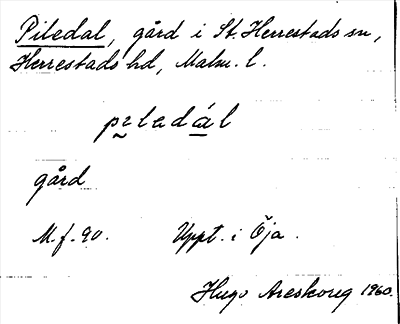 Piledal, gård i St. Herrestads sn,
Herrestads hd, Malm. l.
pɪladál
gård
M. f. 90. Uppt. i Öja.
Hugo Areskoug 1960.